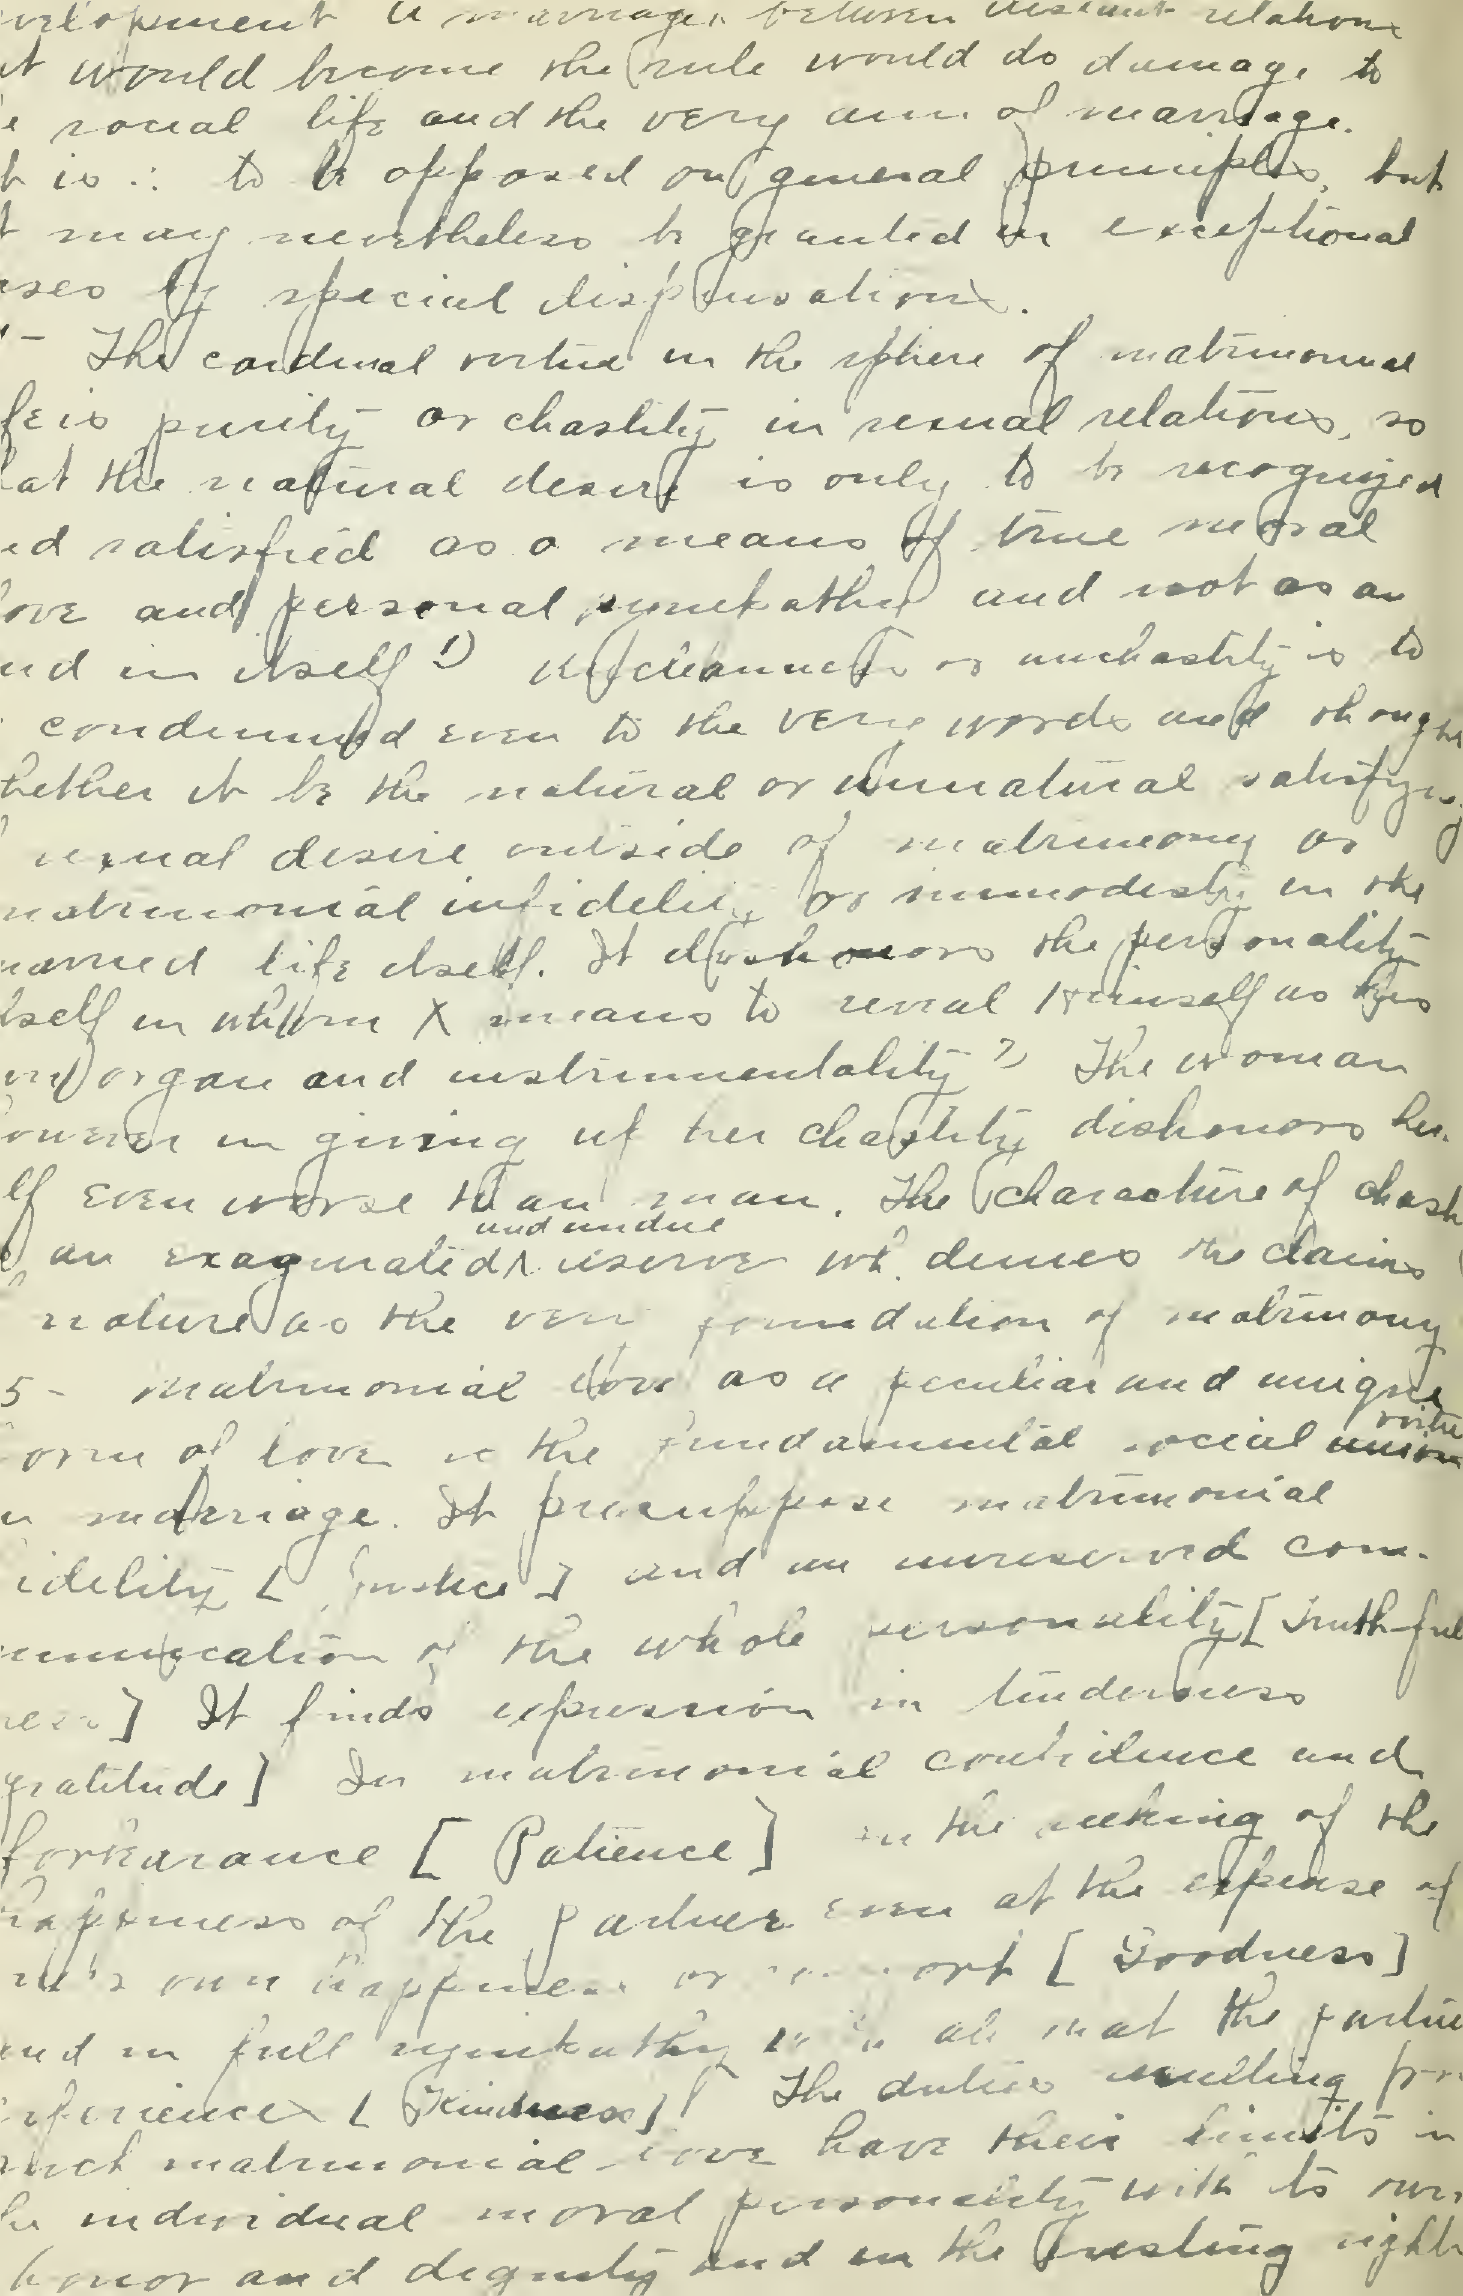 velopment a marriage between distant relations
it would become the rule would do damage to
e social life and the very aim of marriage.
t is ∴ to be opposed on general principles, but
t may nevertheless be granted in exceptional
ases by special dispensations.
- The cardinal virtue in the sphere of matrimonial
fe is purity or chastity in sexual relations, so
hat the natural desire is only to be recognized
nd satisfied as a means of true moral
love and personal sympathy and not as an
nd in itself 1) Uncleanness or unchastity is to
condemned even to the very words and thoughts
hether it be the natural or unnatural satisfying
sexual desire outside of matrimony or
matrimonial infidelity or immodesty in the
married life itself. It dishonors the personality
itself in whom X means to reveal Himself as His
own organ and instrumentality 2) The woman
however in giving up her chastity dishonors her.
lf even worse than man. The characture of chast
an exagerated and undue reserve wh. denies the claims
nature as the very foundation of matrimony
5 - Matrimonial love as a peculiar and unique
form of love is the fundamental social virtue
in marriage. It presuppose matrimonial
idelity [Justice] and an unreserved com-
munication of the whole personality [Truthful
ness] It finds expression in tenderness
gratitude] In matrimonial confidence and
forbearance [Patience] in the seeking of the
happiness of the partner even at the expense of
ne's own happiness or comfort [Goodness]
and in full sympathy in all that the partner
experiences [Kindness] The duties resulting from
such matrimonial love have their limits in
he individual moral personality with its own
honor and dignity and in the resting rights